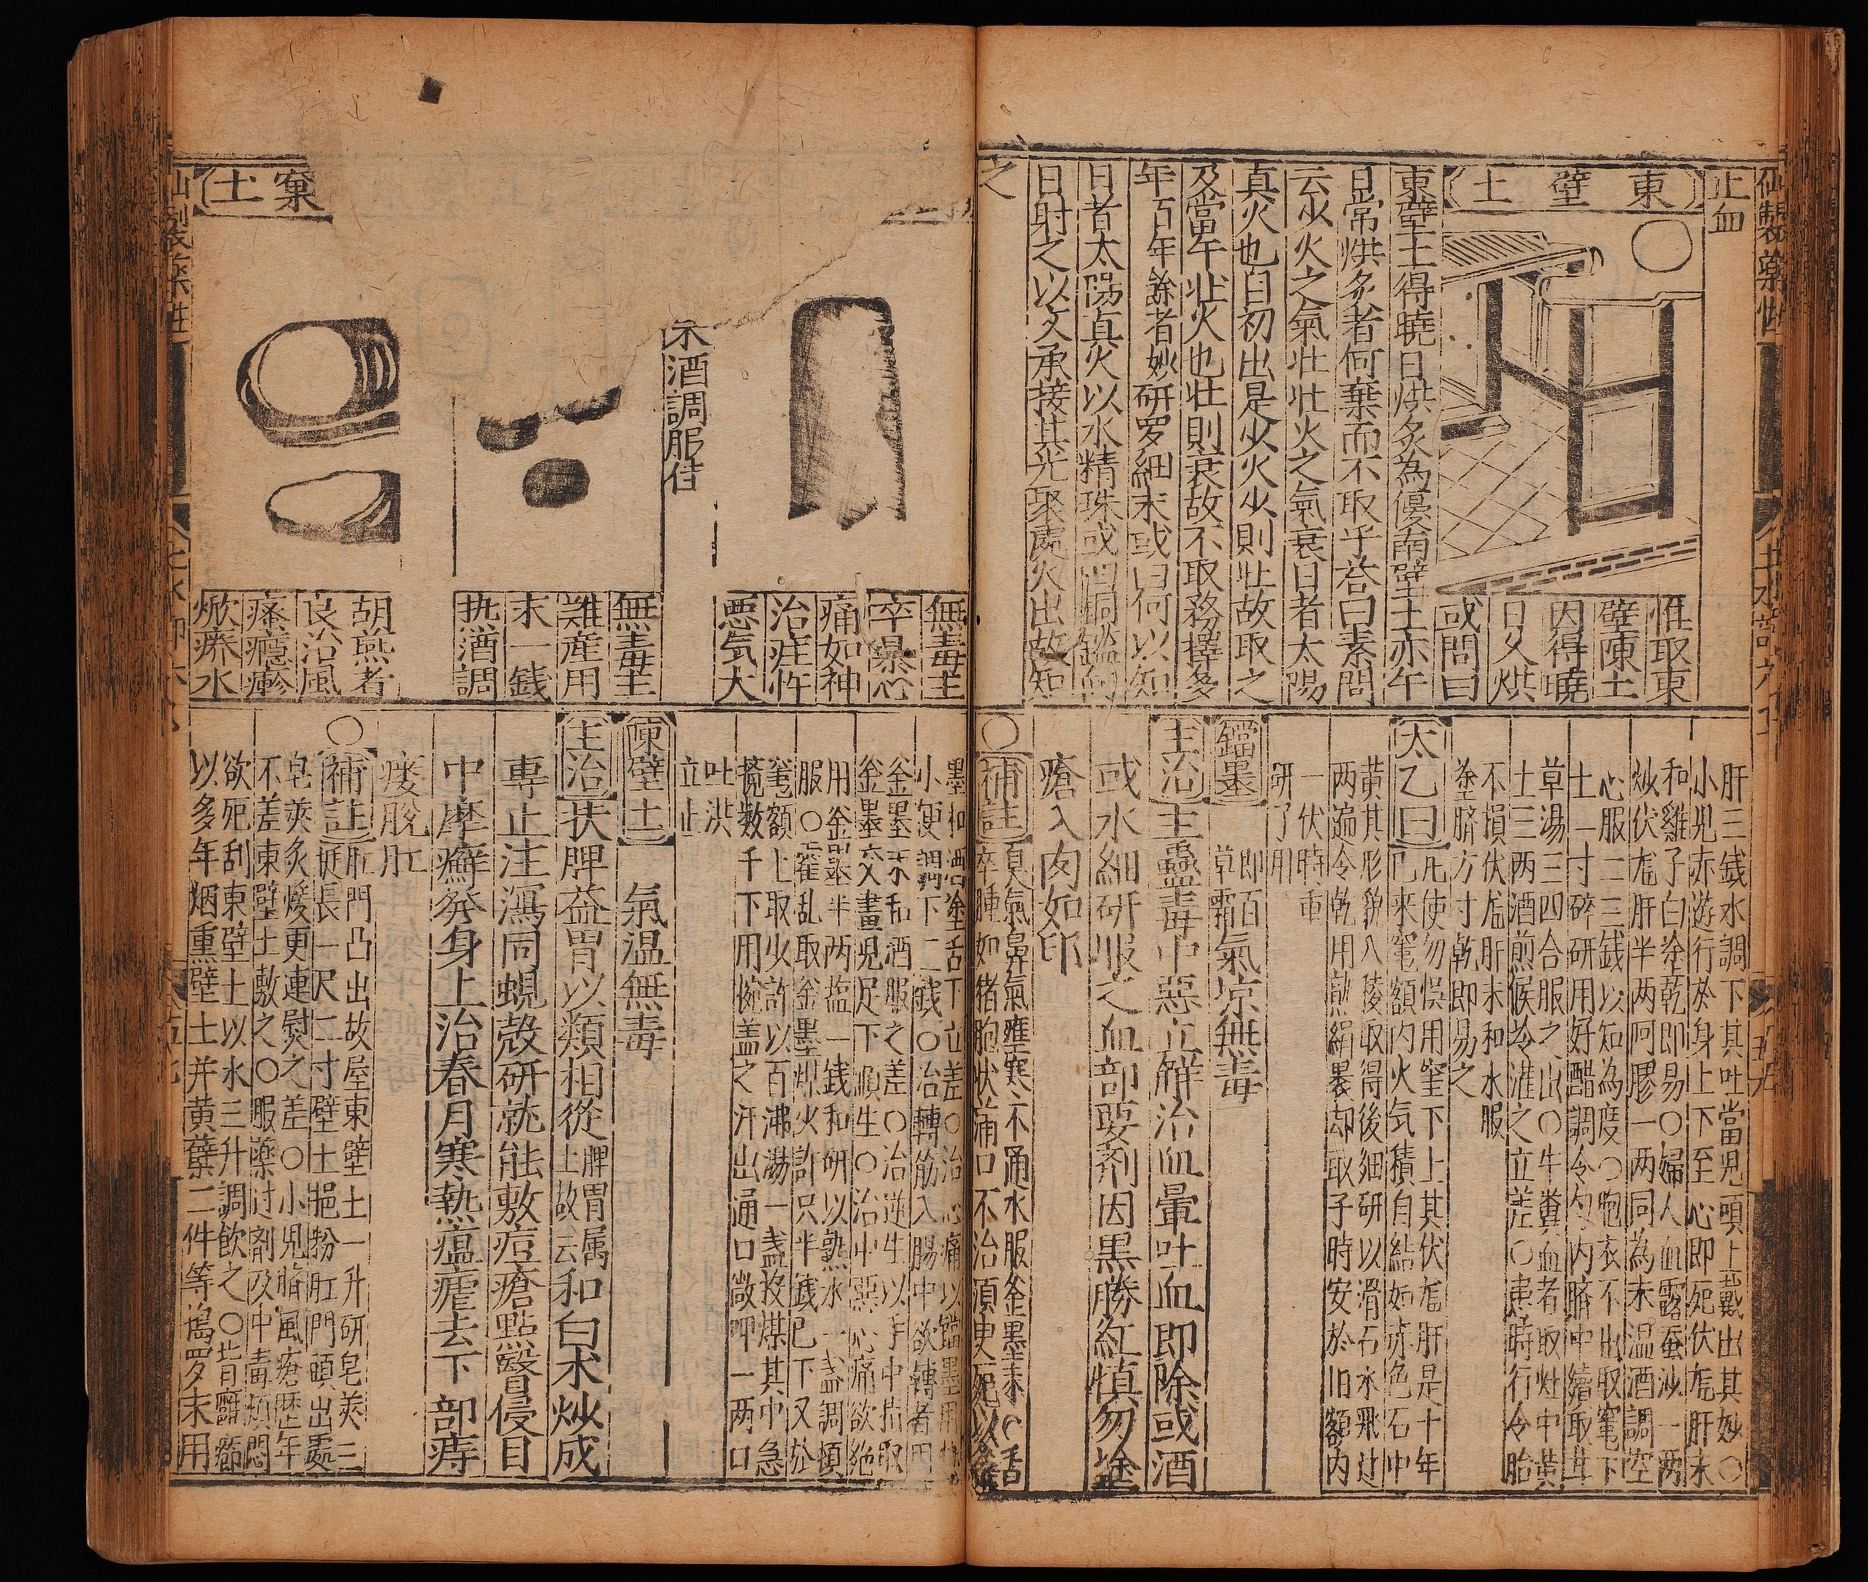 止血
東壁土
惟取東
壁陳土
因得曉
日久烘
或問曰
東壁土得曉日烘炙為優南壁土亦午
日常烘炙者何棄而不取乎荅曰素問
云少火之氣壯壯火之氣衰日者太陽
真火也自初出是少火少則壯故取之
及當午壯火也壯則衰故不取務擇多
年百年餘者妙研罗細末或曰何以知
日者太陽真火以水精珠或銅鑑向
日射之以久承接其光聚處火出故知
之
肝三錢水調下其吐當児頭上戴出其妙〇
小児赤遊行於身上下至心即死伏虎肝末
和雞子白塗乾即易〇婦人血露蚕沙一两
炒伏虎肝半两阿膠一两同為末温酒調空
心服二三錢以知為度〇胞衣不出取竈下
土一寸碎研用好醋調令勻内臍中續取甘
草湯三四合服之出〇牛糞血者取灶中黄
土三两酒煎候冷灌之立差〇時行令胎
不損伏虎肝末和水服
塗臍方寸乾即易之
太乙曰凡使勿悮用窰下土其伏虎肝是十年
已來竈額内火气積自結如赤色石中
黄其形貌八稜取得後細研以滑石水飛过
两遍令乾用熟絹裹却取子時安於旧額内
一伏時重
研了用
鐺墨即百草霜氣凉無毒
主治主蠱毒中惡立解治血暈吐血即除或酒
或水細研服之血部要剤因黒勝紅慎勿塗
瘡入肉如印
〇補註臭氣鼻氣壅塞不通水服釜墨末〇舌
卒腫如猪胞状满口不治須臾死以釜
無毒主
卒暴心
痛如神
治疰忤
悪気大
末酒調服佳
無毒主
難産用
末一錢
热酒調
土
胡燕者
良治風
瘙癮疹
焮療水
墨和酒塗舌下立差〇治心痛以鐺墨用
小便調下二錢〇治轉筋入腸中欲轉者
釜墨末和酒服之差〇治逆生以手中指取
釜墨交畫児足下順生〇治中惡心痛欲絶
用釜墨半两塩一錢和研以熟水一盏調頓
服〇霍乱取釜墨烟火許只半錢已下又於
竈額上取火許以百沸湯一盏投煤其中急
攪数千下用椀盖之汗出通口微呷一两口
吐洪
立止
陳壁土氣温無毒
主治扶脾益胃以類相從脾胃属土故云和白术炒成
專止注瀉同蜆殼研統能敷痘瘡點翳侵目
中摩癬發身上治春月寒熱瘟瘧去下部痔
瘻脫肛
〇補註肛門凸出故屋東壁土一升研皂莢三
挺長一尺二寸壁土挹粉肛門頭出處
皂莢炙煖更連熨之差〇小児臍風瘡歷年
不差東壁土敷之〇服藥过剤及中毒煩悶
欲死刮東壁土以水三升調飲之〇背癰癤
以多年烟熏壁土并黄蘗二件等為羅末用